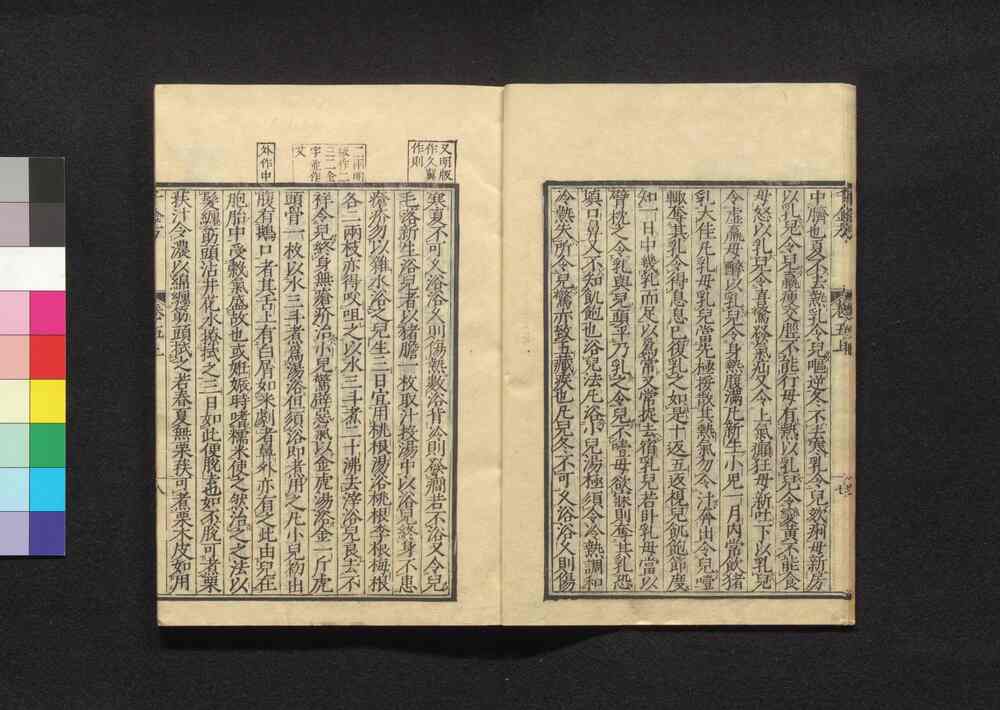 中臍也夏不去熱乳令兒嘔逆冬不去寒乳令兒欬痢母新房
以乳兒令兒羸瘦交脛不能行母有熱以乳兒令變黃不能食
母怒以乳兒令喜驚發氣疝又令上氣癲狂母新吐下以乳兒
令虛羸母醉以乳兒令身熱腹滿凡新生小兒一月內常飲猪
乳大佳凡乳母乳兒當先極挼散其熱氣勿令汁奔出令兒噎
輒奪其乳令得息息已復乳之如是十返五返視兒飢飽節度
知一日中幾乳而足以爲常又常捉去宿乳兒若臥乳母當以
臂枕之令乳與兒頭平乃乳之令兒不噎母欲寐則奪其乳恐
塡口鼻又不知飢飽也浴兒法凡浴小兒湯極須令冷熱調和
冷熱失所令兒驚亦致五藏疾也凡兒冬不可久浴浴久則傷
又明版
作久冀
作則
寒夏不可久浴浴久則傷熱數浴背冷則發癇若不浴又令兒
毛落新生浴兒者以猪膽一枚取汁投湯中以浴兒終身不患
瘡疥勿以雜水浴之兒生三日宜用桃根湯浴桃根李根梅根
各二兩枝亦得㕮咀之以水三斗煮二十沸去滓浴兒良去不
祥令兒終身無瘡疥治小兒驚辟惡氣以金虎湯浴金一斤虎
頭骨一枚以水三斗煮爲湯浴但須浴即煮用之凡小兒初出
外作中
腹有鵝口者其舌上有白屑如米劇者鼻外亦有之此由兒在
胞胎中受穀氣盛故也或妊娠時嗜糯米使之然治之之法以
髮纏筯頭沾井花水撩拭之三日如此便脫去也如不脫可煮栗
莢汁令濃以綿纏筯頭拭之若春夏無栗莢可煮栗木皮如用